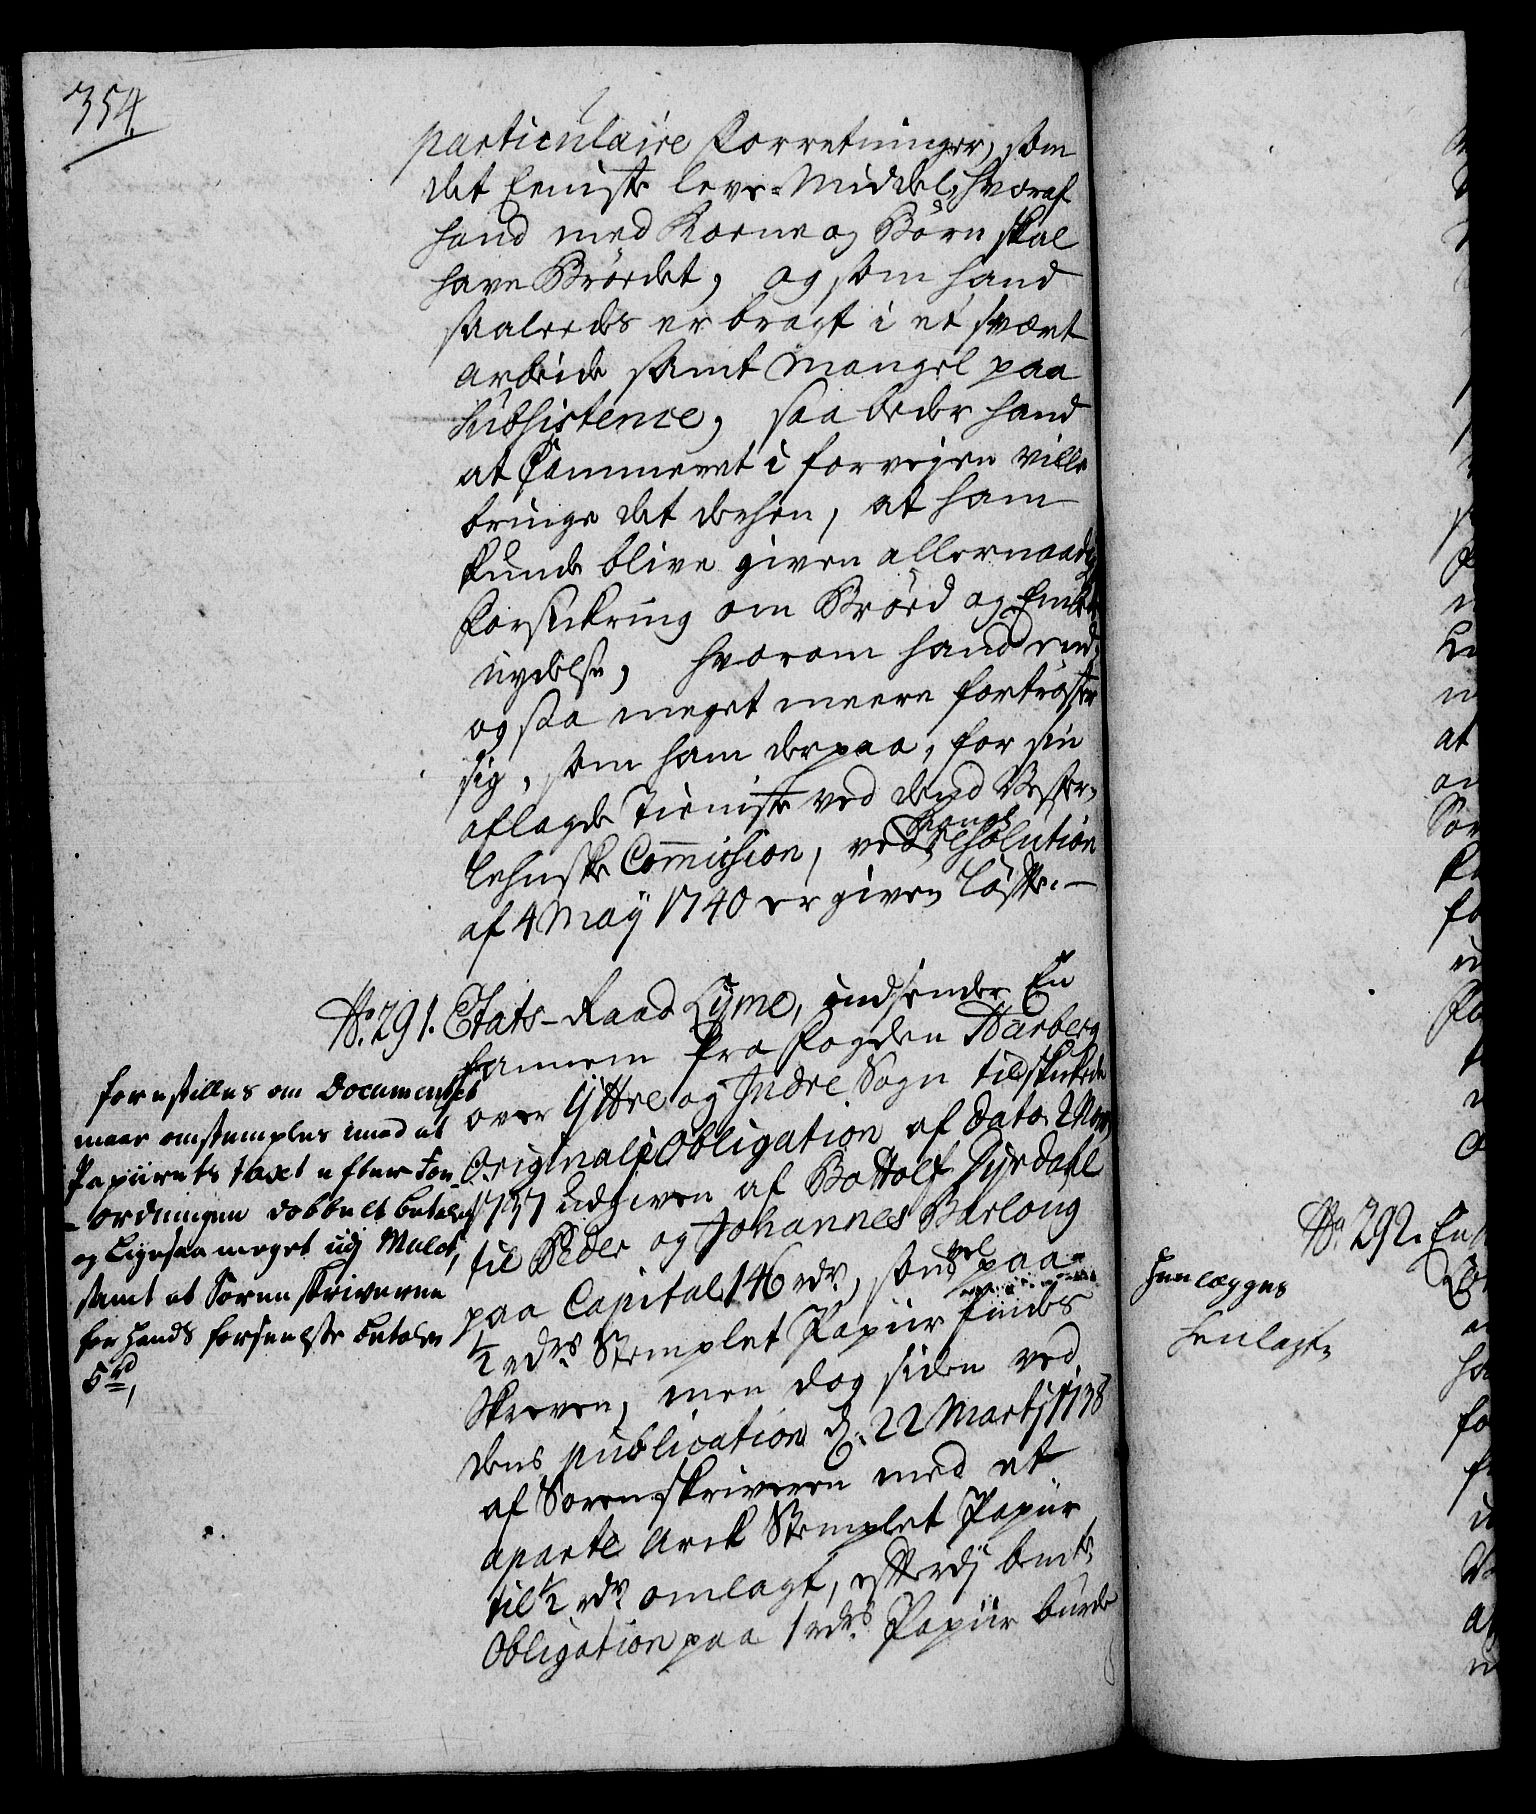 354.
particulaire Forretninger, som
det Eeniste leve-Middel, hvoraf
hand med Kone og Börn skal
have Brödet, og som hand
saaleedes er bragt i et svært
arbeide samt Mangel paa
Subsistence, saa beder hand
at Cammeret i forvejen ville
bringe det derhen, at ham
kunde blive given allernaadig
Forsickring om Bröd og Embeds
nydelse, hvorom hand end,
og saa meget meere fortröster
sig, som ham derpaa, for sin
aflagde Tieniste ved dend Vester-
lehnske Commission, ved Kongl
Resolution
af 4 Maÿ 1740 er given Löfte.-
No. 291. Etats-Raad Lÿme, indsender En
hannem fra Fogden Warberg
over Ÿttre og Indre Sogn tilskikede
Original Obligation af dato 2 Nov,
1737 udgiven af Bottolf Dyrdahl
til Peder og Johannes Barloug
paa Capital 146 rdr., som vel paa
1/2 rdrs Stemplet Papiir findes
Skreven, men dog siden ved
dens publication d. 22 Martÿ 1738
af Sorenskriveren med et
aparte Arck Stemplet Papiir
til 1/2 rdr. omlagt, efterdj bemte
Obligation paa 1 rdrs Papiir burde
forestilles om Documentet
maae omstemples imod at
Papiirets taxt efter For-
ordningen dobbelt betales
og Ligesaa meget udj Mulct,
samt at Sorenskriveren
for hands forseelse betaler
5 rd,
No 292. En
Henlægges
Henlagt